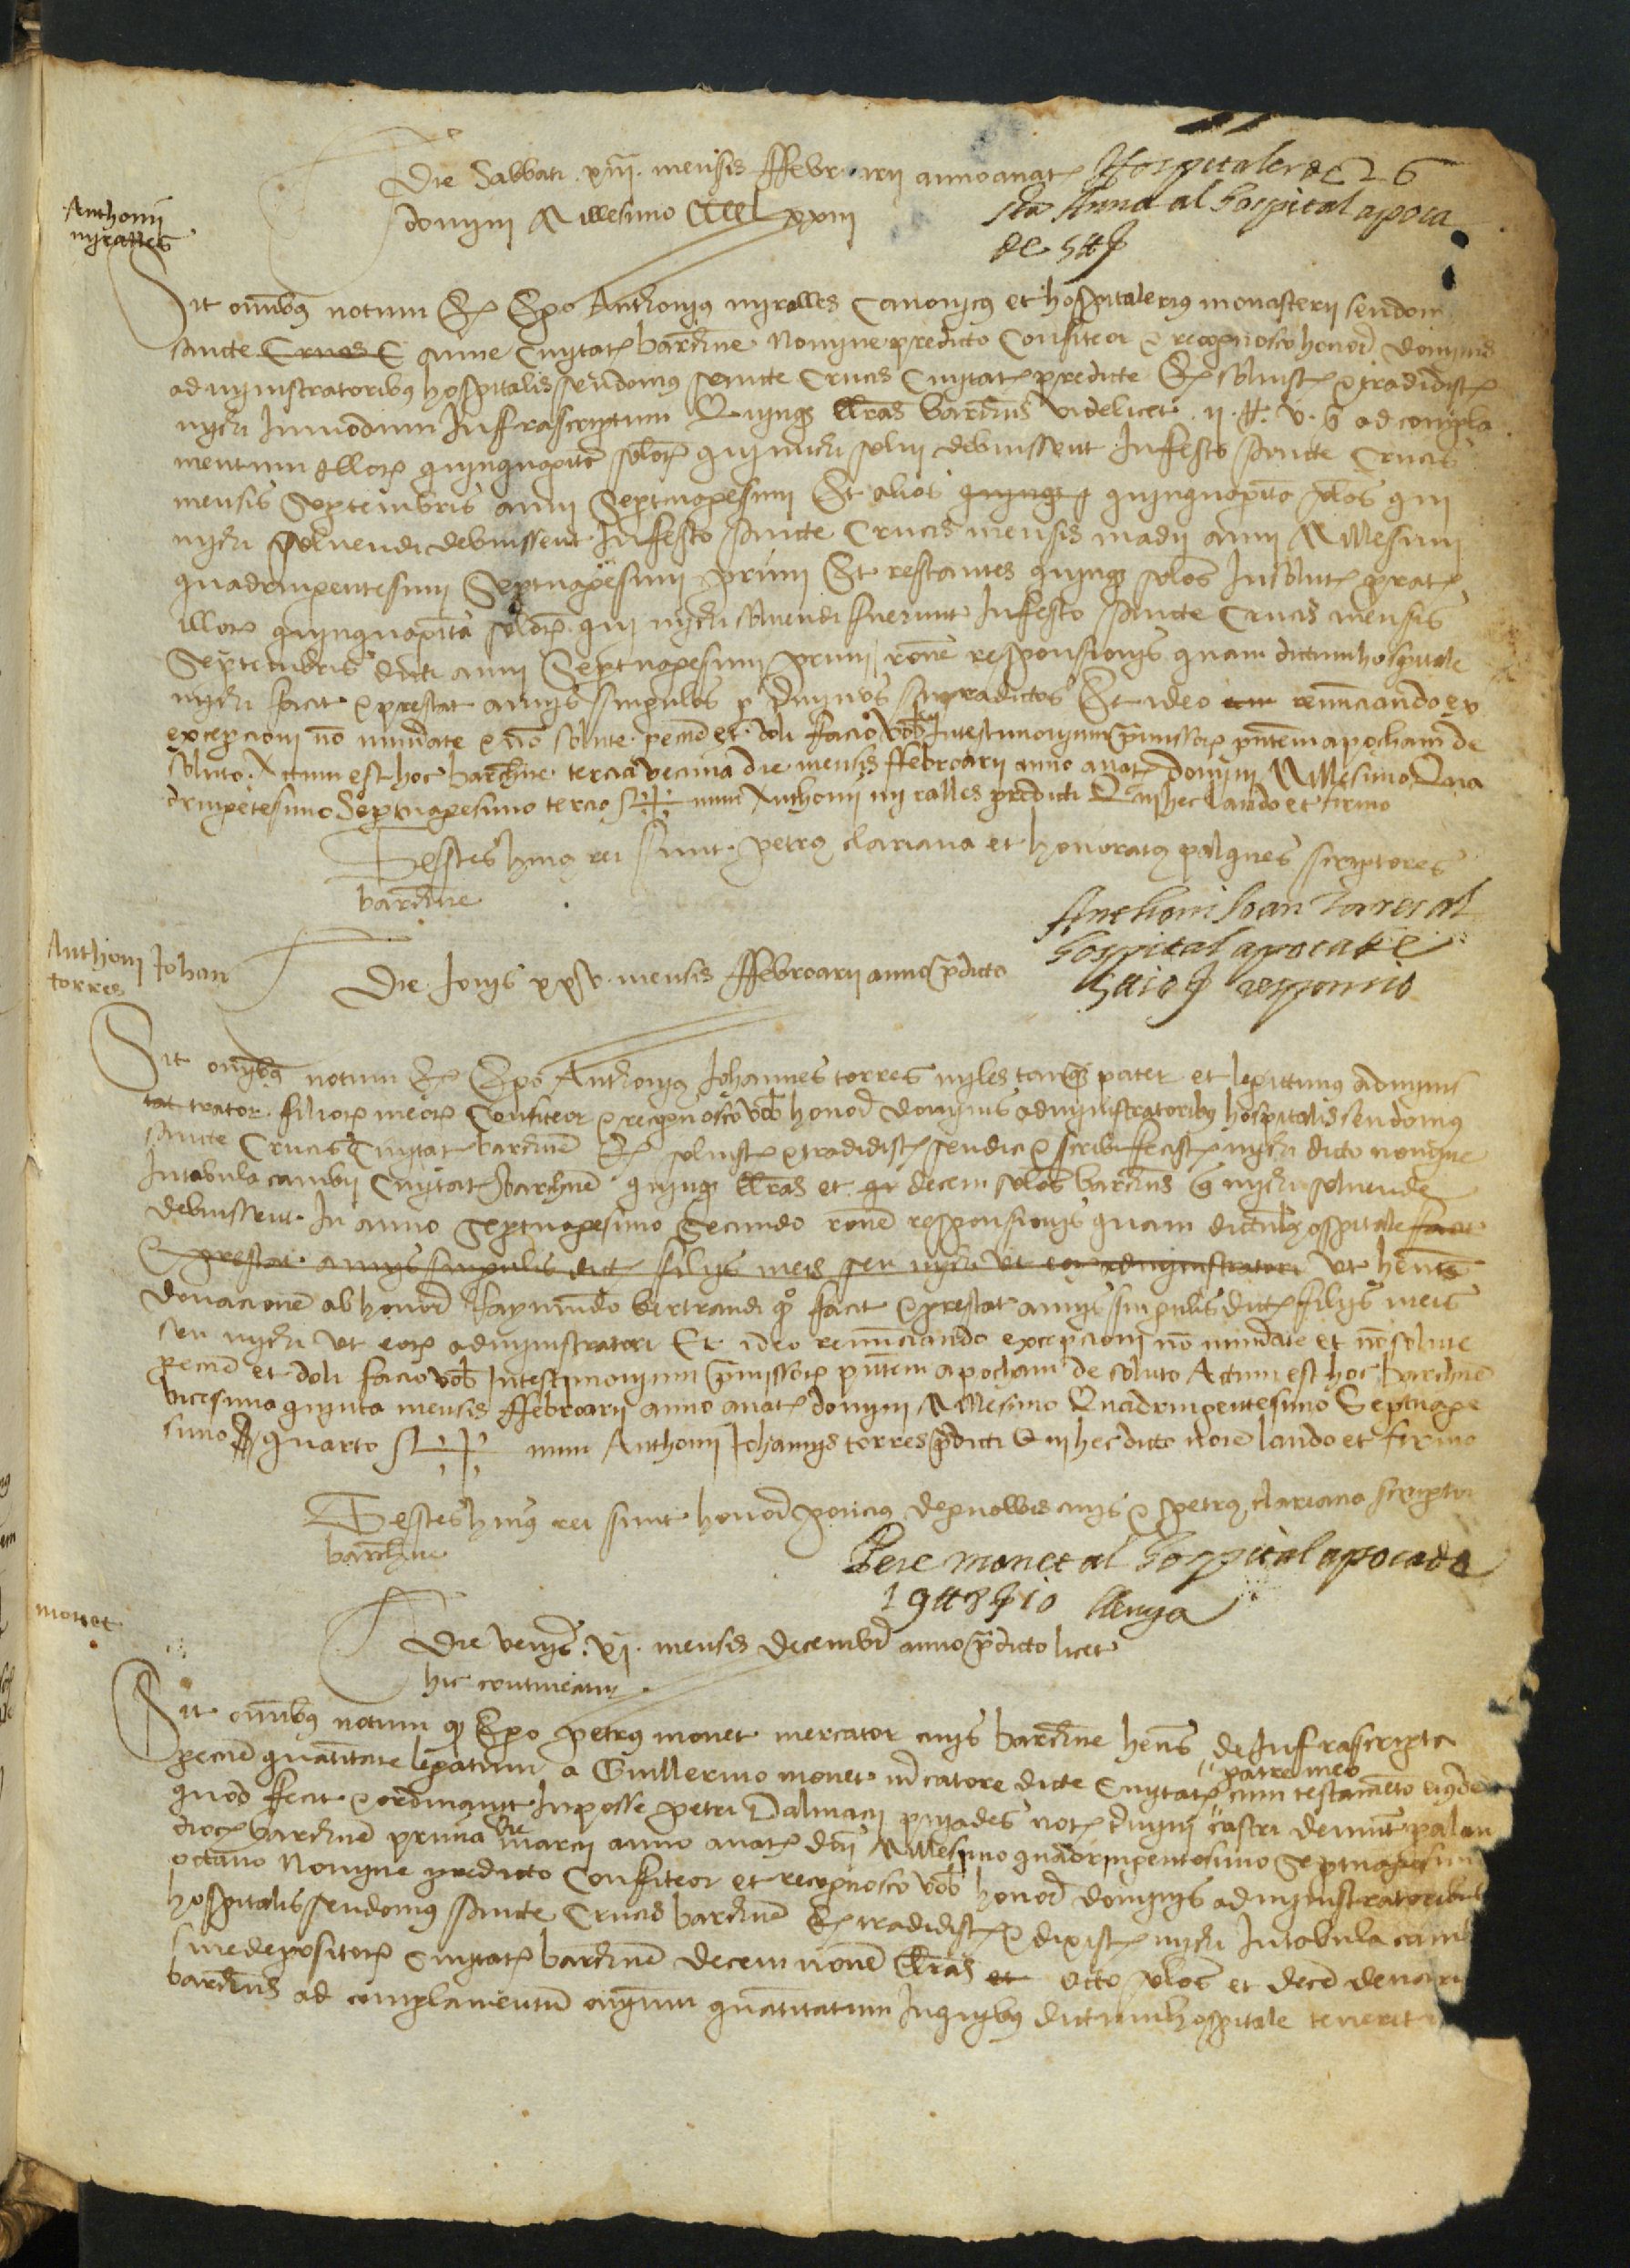 Die Sabbati xiii mensis ffebroarii anno a nat
domini Millesimo CCCCLxxiii
Hospitaler de 26
sta Anna al hospital apoca
de 5 ℔
Anthonii
miralles
Sit omnibus notum Ego Anthonius miralles Canonicus et hospitalerius monasterii seu dom
sancte Crucis C anne Civitat barchne Nomine predicto Confiteor et recognosco honor dominis
administratoribus hospitalis seu domus sancte Crucis Civitat predicte solvist et tradidist
michi In modum Infrascriptum Quinque libras barchns videlicet ii ℔ v s ad compla
mentum illor quinquaginta solor qui michi solvi debuissent In festo sancte Crucis
mensis Septembris anni Septuagesimi Et alios quinque quinquaginta solos qui
michi solvendi debuissent In festo sancte Crucis mensis madii anni Millesimi
quadringentesimi Septuagesimi primi Et restantes quinque solos In solut prorat
illor quinquaginta solor qui michi solvendi fuerunt In festo sancte Crucis mensis
Septembris dicti anni Septuagesimi primi rone responsionis quam dictum hospitale
michi facit et prestat annis singulis p terminos supradictos Et ideo renunciando ex
excepcioni no numerate et no solute pecunie et doli facio vob In testimonium premissor pntem apocham de
soluto Actum est hoc barchne tercia decima die mensis ffebroarii anno a nat domini Millesimo Qua
dringetesimo Septuagesimo tercio Sig+num Anthonii miralles predicti Qui hec laudo et firmo
Testes huius rei sunt petrus clariana et honoratus palques scriptores
barchne
Anthoni Joan Tores al
hospital apoca de
5 ℔ 10 responsio
Anthonii Johan
torres
Die Jovis xxv mensis ffebroarii anno predicto
Sit omnibus notum Ego Anthonius Johannes torres miles tanq pater et legittimus adminis
trator filior meor Confiteor et recognosco vob honor dominis administratoribus hospitalis seu domus
sancte Crucis Civitat barchne solvist et tradidist seu dici et scribi fecist michi dicto nomine
In tabula cambii Civitat barchne quinque libras et decem solos barchns michi solvende
debuissent In anno Septuagesimo Secundo rone responsionis quam dictum hospitale facit
et prestat annis singulis dict filiis meis seu michi ut eor administratori ut hentes
donacione ab honor Raymundo bertrandi facit et prestat annis singulis dict filiis meis
seu michi ut eor administratori Et ideo renunciando excepcioni no numerate et no solute
pecunie et doli facio vob In testimonium premissor pntem apocham de soluto Actum est hoc barchne
vicesima quinta mensis ffebroarii anno a nat domini Millesimo Quadringentesimo Septuage
simo quarto Sig+num Anthonii Johannis torres predicti Qui hec dicto noie laudo et firmo
Testes huius rei sunt honor poncius civis et petrus clariana scriptor
barchne
Pere monet al hospital apoca de
19 ℔ 8 10
monet
Die veneris xi mensis decembr anno predicto licet
hic continuatur
Sit omnibus notum q Ego petrus monet mercator civis barchne hens de Infrascripta
pecunie quantitate legatum a Guillermo monet mercatore dicte Civitat patre meo cum testamento eiusde
quod fecit et ordinavit In posse petri Dalmacii not castri
dioc barchne prima die marcii anno a nat dni Millesimo quadringentesimo Septuagesim
octavo Nomine predicto Confiteor et recognosco vob honor dominis administratoribus
hospitalis seu domus sancte Crucis barchne tradidist et dixist michi In tabula camb
sive depositor Civitat barchne decem novem libras et octo solos et decem denari
barchns ad complamentum omnium quantitatum In quibus dictum hospitale tenerit